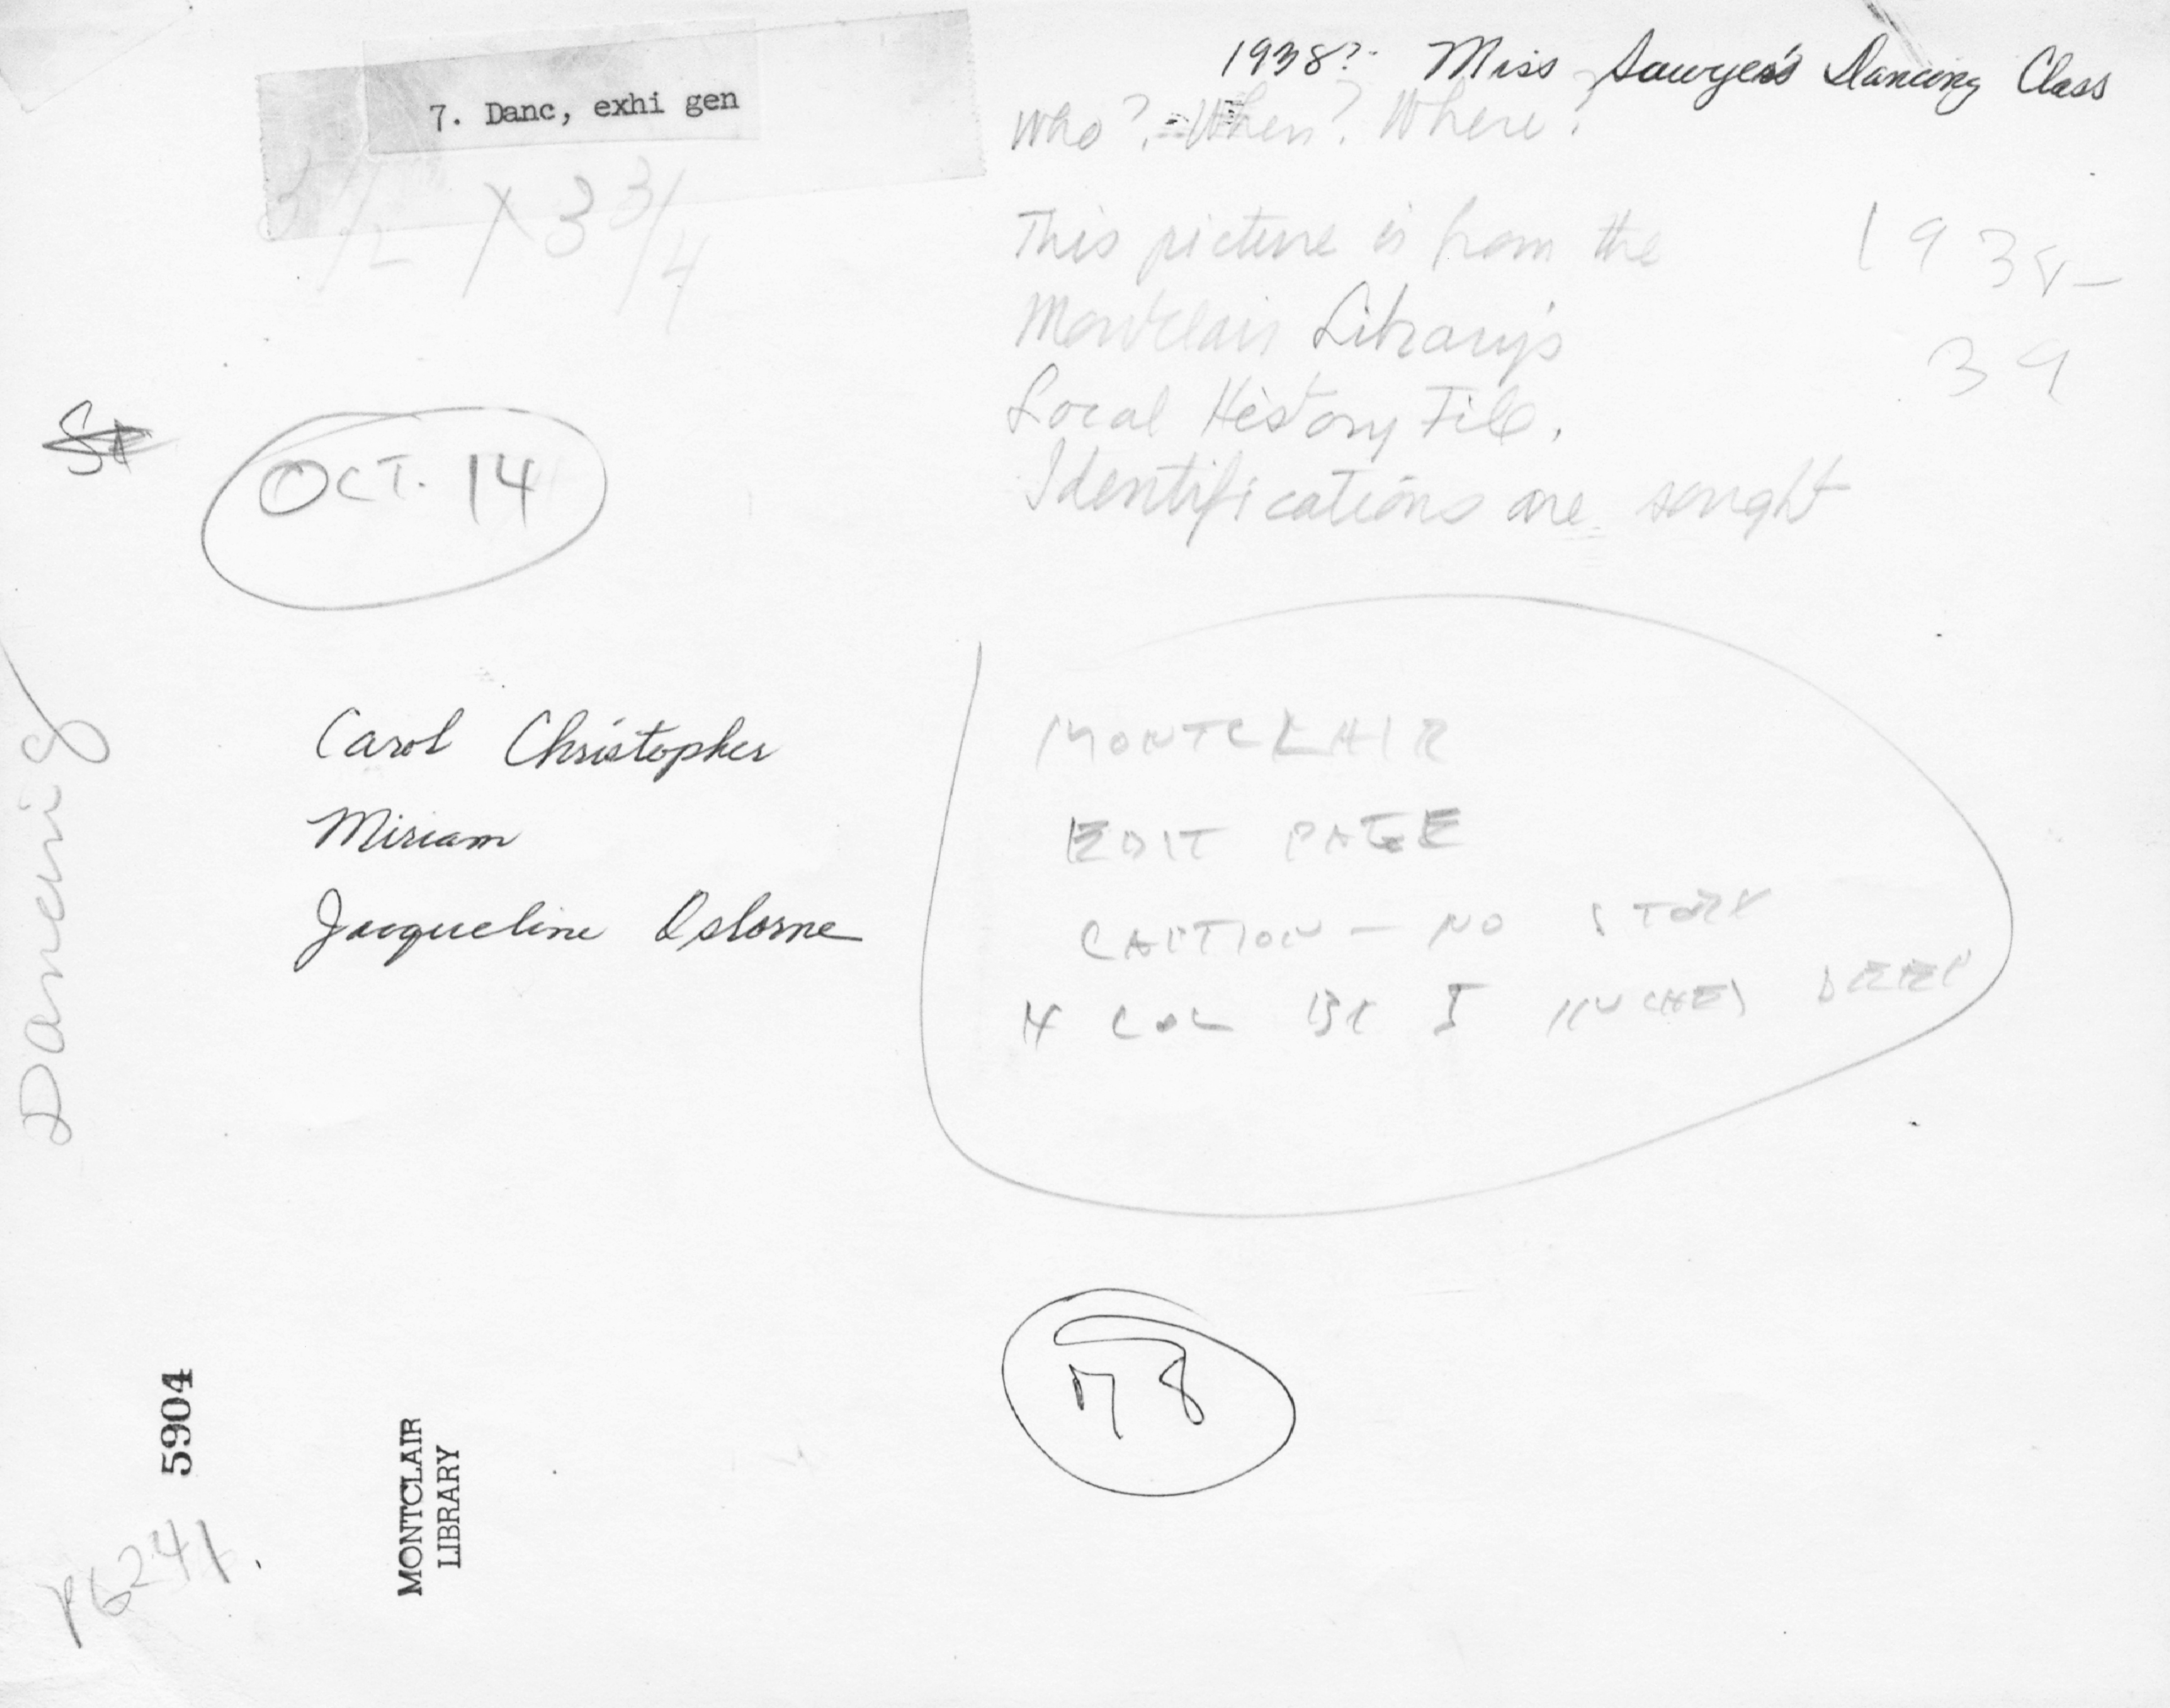 7. Danc, exhi gen
1938? Miss Sawyer's Dancing Class
Who? When? Where?
1/2 X 3 3/4
This picture is from the
Montclair Library's
Local History File.
Identifications are sought
1938-
39
OCT. 14
Carol Christopher
Miriam
Jacqueline Osborne
MONTCLAIR
EDIT PAGE
CAPTION - NO STORY
4 COL BY 5 INCHES DEEP
Dancing
78
5904
MONTCLAIR
LIBRARY
P6241